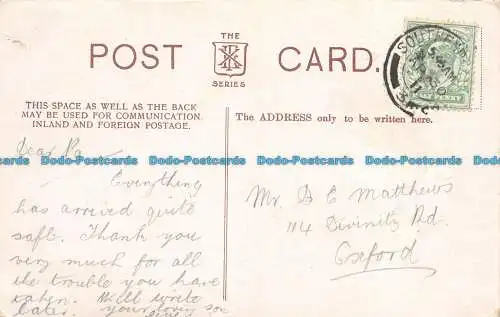 POST CARD.
THE
K
SERIES
THIS SPACE AS WELL AS THE BACK
MAY BE USED FOR COMMUNICATION
INLAND AND FOREIGN POSTAGE.
The ADDRESS only to be written here.
Dear Pa
Everything
has arrived quite
safe. Thank you
very much for all
the trouble you have
taken. Will write
later. your loving son
Mr. B E Matthews
114 Divinity Rd.
Oxford
Postcards Postcards Postcards Postcards Postcards Postcards Postcards